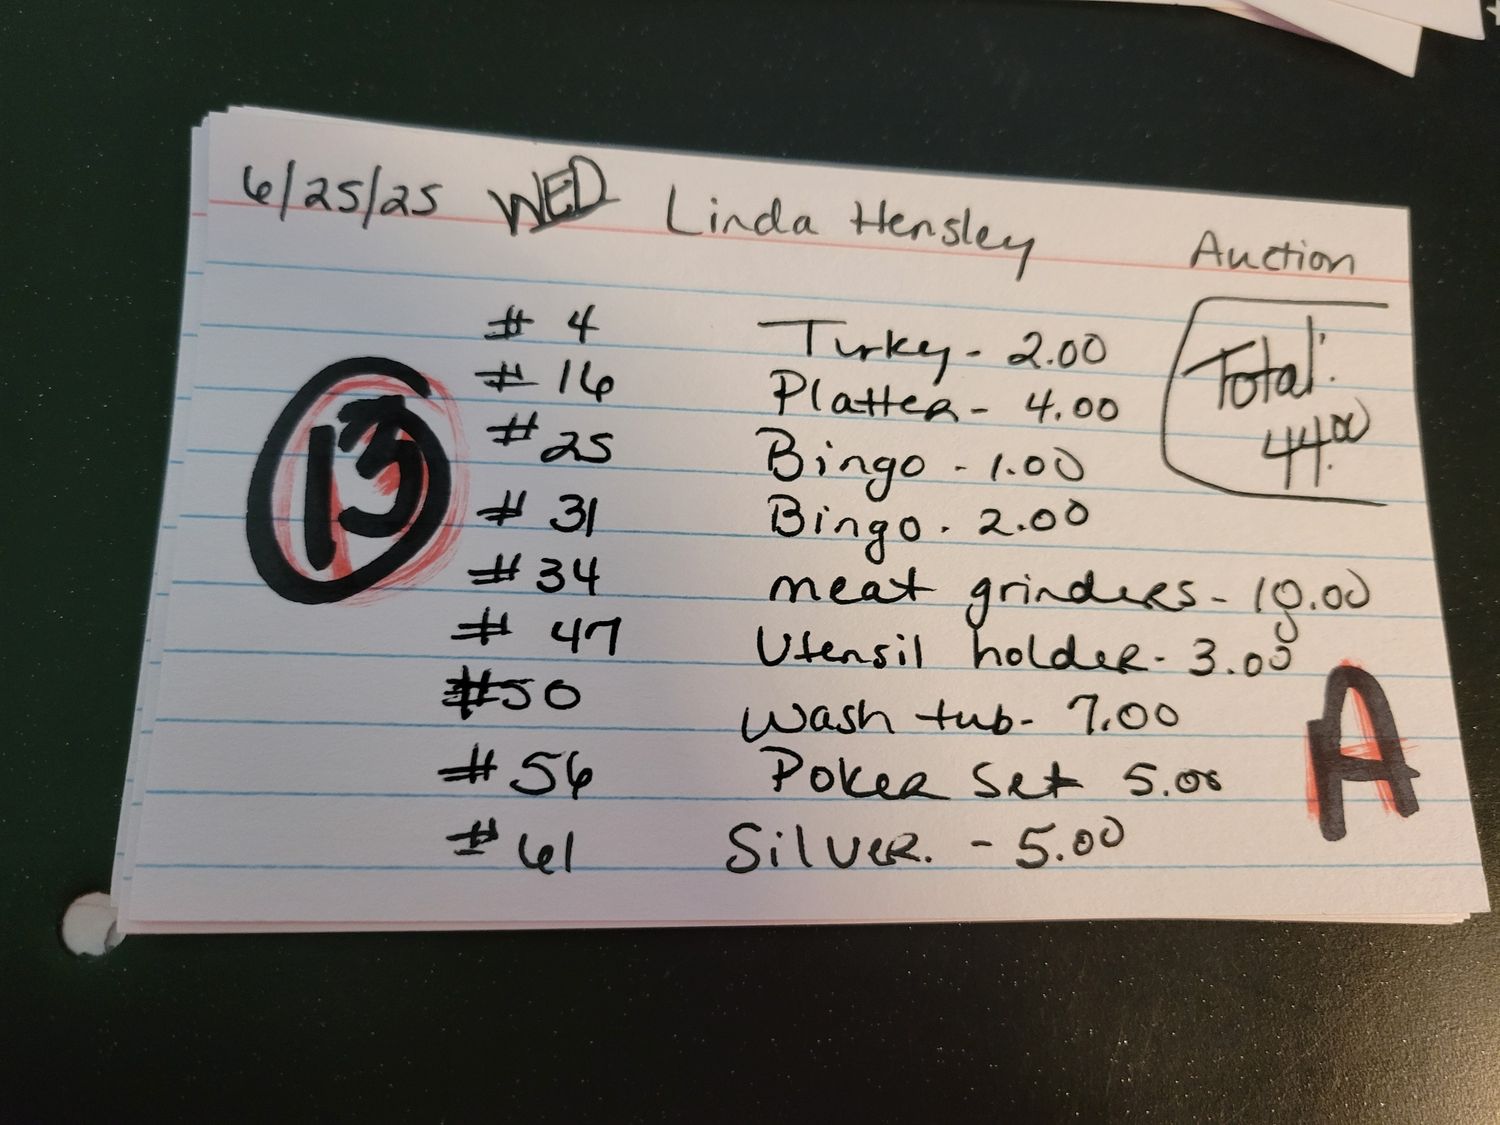 6/25/25 WED Linda Hensley Auction
# 4 Turky - 2.00
# 16 Platter - 4.00
# 25 Bingo - 1.00
# 31 Bingo - 2.00
# 34 meat grinders - 10.00
# 47 Utensil holder - 3.00
#50 Wash tub - 7.00
# 56 Poker set 5.00
# 61 Silver. - 5.00
Total:
44.00
13
A